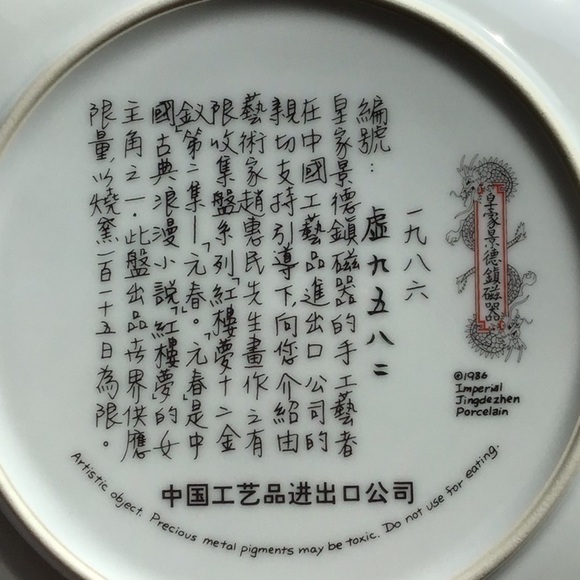 皇家景德鎮磁器
©1986
Imperial
Jingdezhen
Porcelain
一九八六
編號：虚九五八二
皇家景德鎮磁器的手工藝者
在中國工藝品進出口公司的
親切支持引導下，向您介紹由
藝術家趙惠民先生畫作之有
限收集盤系列「紅樓夢十二金
釵」第二集—「元春」。「元春」是中
國古典浪漫小說「紅樓夢」的女
主角之一．此盤出品世界供應
限量，以燒窯一百一十五日為限。
中国工艺品进出口公司
Artistic object. Precious metal pigments may be toxic. Do not use for eating.